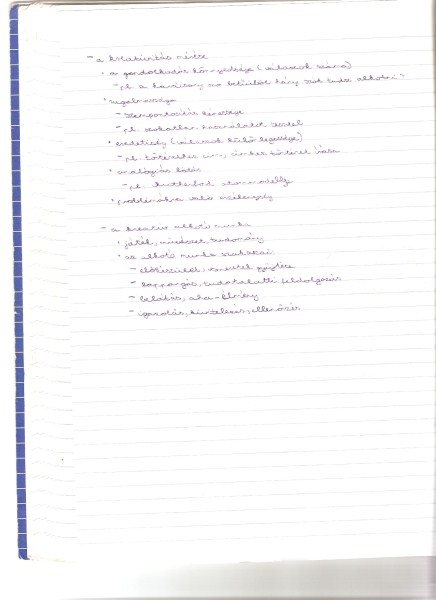 - a kreativitás mérése
• a gondolkodás könnyedsége (válaszok száma)
- pl. a karácsony szó betűiből hány szót tudsz alkotni?
• rugalmassága
- szempontváltás készsége
- pl. szokatlan használatot
• eredetiség (válaszok különlegessége)
- pl. történethez cím, címhez történet írása
• analógiás látás
- pl. Rutherford atommodellje
• problémákra való érzékenység
- a kreatív alkotó munka
• játék, művészet, tudomány
• az alkotó munka szakaszai
- előkészület, ismeret gyűjtése
- lappangás, tudatalatti feldolgozás
- belátás, aha-élmény
- igazolás, kivitelezés, ellenőrzés